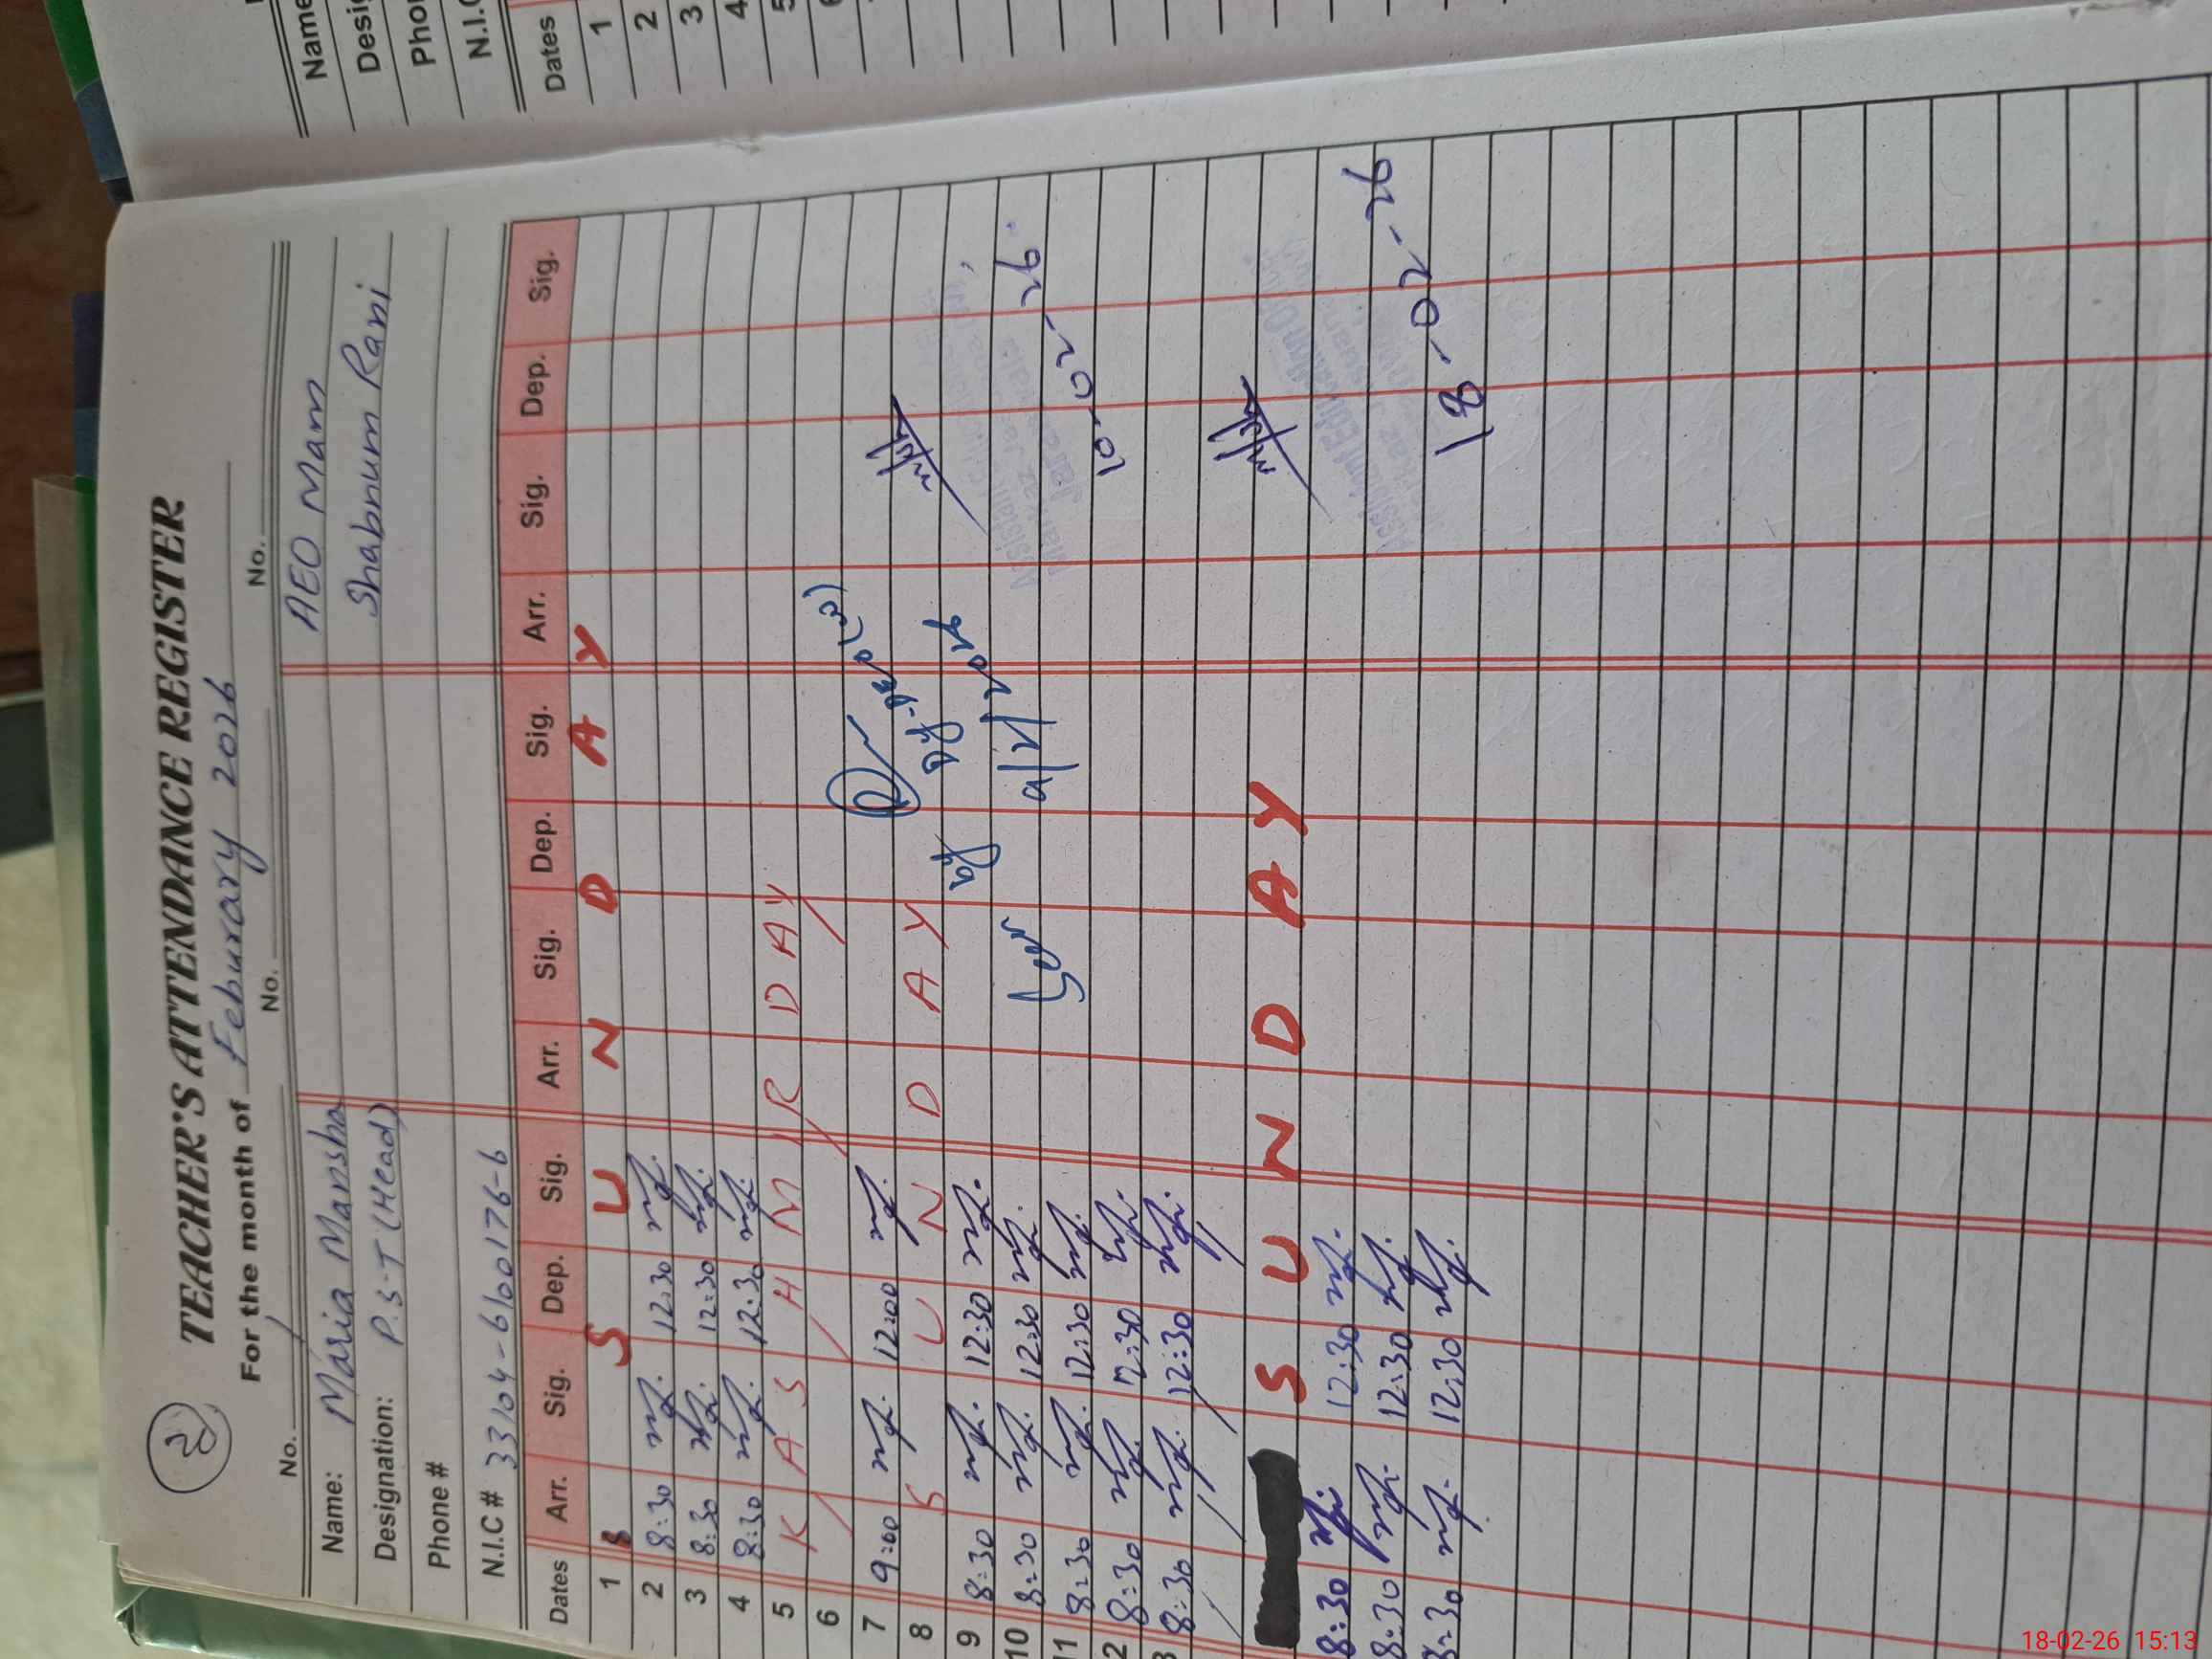 2
TEACHER'S ATTENDANCE REGISTER
For the month of Feburary 2026
No. No. No.
Name: Maria Mansha AEO Mam
Designation: P.S-T (Head) Shabnum Rani
Phone #
N.I.C # 33104-6100176-6
Dates Arr. Sig. Dep. Sig. Arr. Sig. Dep. Sig. Arr. Sig. Dep. Sig.
1 S U N D A Y
2 8:30 12:30
3 8:30 12:30
4 8:30 12:30
5 K A S H M I R D A Y
6
7 9:00 12:00
8 S U N D A Y
9 8:30 12:30
10 8:30 12:30
10-02-26
11 8:30 12:30
2 8:30 12:30
3 8:30 12:30
S U N D A Y
8:30 12:30
8:30 12:30
8:30 12:30
18-02-26
Name
Desig
Pho
N.I.C
Dates
1
2
3
4
5
6
18-02-26 15:13